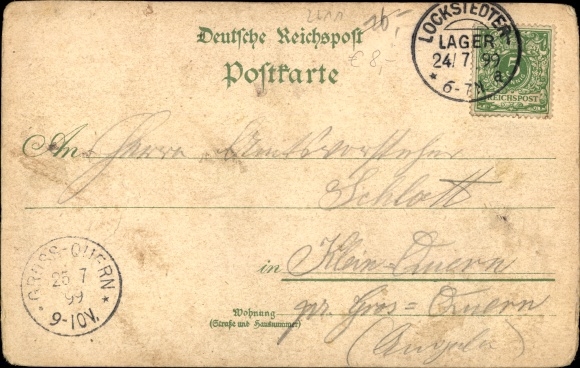 10,-
€ 8,-
Deutsche Reichspost
Postkarte
LOCKSTEDTER
LAGER
24/7 99
* 6-7N a
5
REICHSPOST
An Herrn Amtsvorsteher
Schlott
in Klein-Quern
pr. Gros=Quern
(Angeln)
GROSS-QUERN
25 7
99
9-10V.
Wohnung
(Straße und Hausnummer)